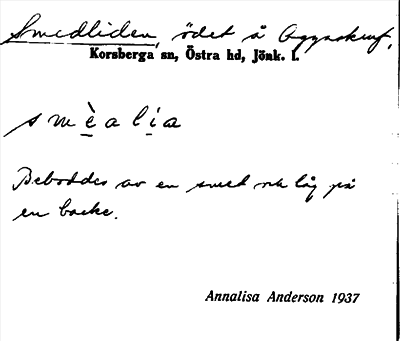 Smedliden, ödet å
Korsberga sn, Östra hd, Jönk. l.
smèalia
Beboddes av en smed och låg på
en backe.
Annalisa Anderson 1937